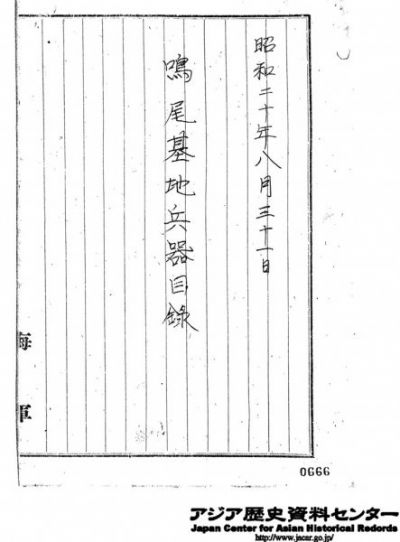 昭和二十年八月三十一日
鳴尾基地兵器目録
海軍
0666
アジア歴史資料センター
Japan Center for Asian Historical Redords
http://www.jacar.go.jp/